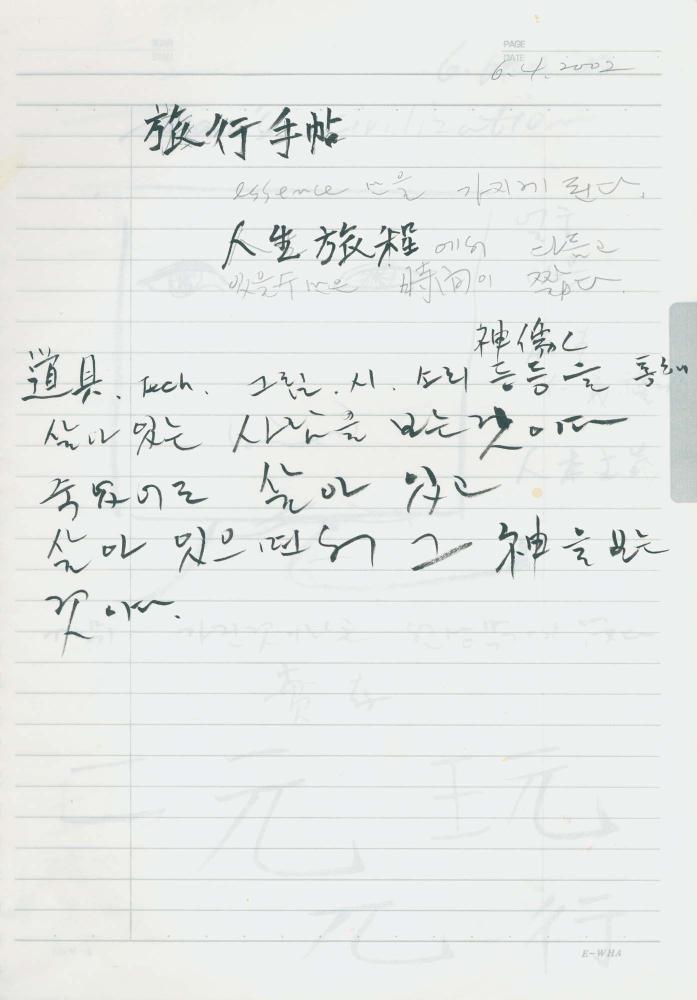 PAGE
DATE
6.4.2002
旅行手帖
essence 만을 가지게 된다.
人生旅程에서 다듬고
있을수만은 時間이 짧다.
神像
道具. Tech. 그림. 시. 소리 등등을 통해
살아 있는 사람을 보는 것이다
살아 있고
살아 있으면서 그 神을 보는
것이다.
E-WHA